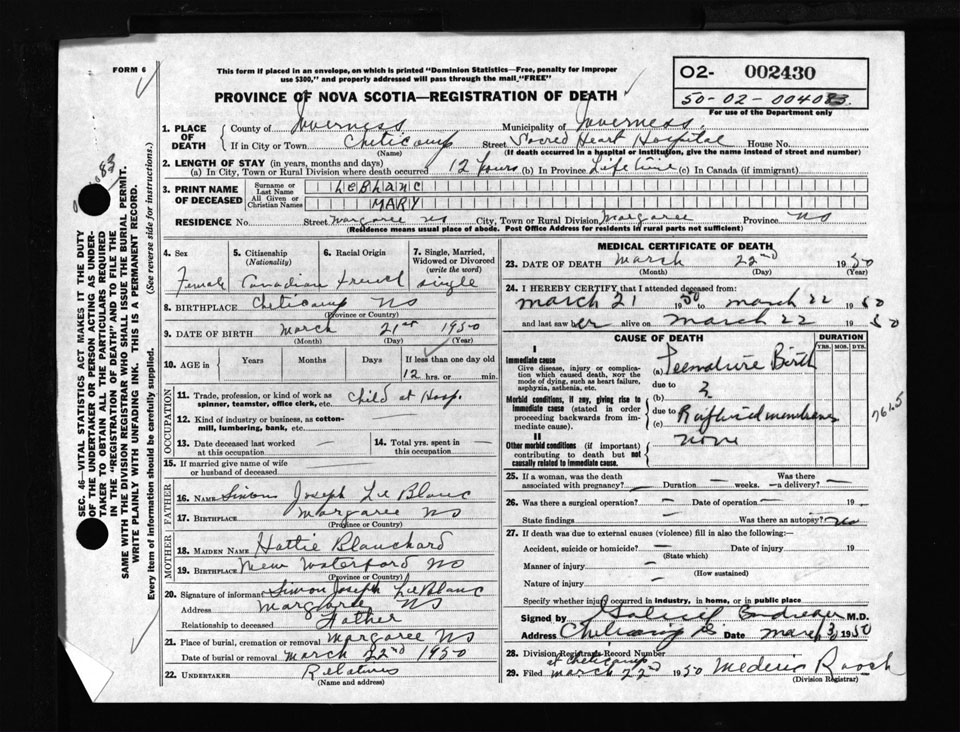 FORM 6
This form if placed in an envelope, on which is printed "Dominion Statistics—Free, penalty for improper
use $300," and properly addressed will pass through the mail "FREE"
O2- 002430
50-02-004083.
For use of the Department only
PROVINCE OF NOVA SCOTIA—REGISTRATION OF DEATH
1. PLACE OF DEATH
County of Inverness Municipality of Inverness
If in City or Town Cheticamp Street Sacred Heart Hospital House No.
(Name) (If death occurred in a hospital or institution, give the name instead of street and number)
2. LENGTH OF STAY (in years, months and days)
(a) In City, Town or Rural Division where death occurred 12 hours (b) In Province Life time (c) In Canada (if immigrant)
3. PRINT NAME OF DECEASED
Surname or Last Name LeBlanc
All Given or Christian Names MARY
RESIDENCE No. Street Margaree NS City, Town or Rural Division Margaree Province NS
(Residence means usual place of abode. Post Office Address for residents in rural parts not sufficient)
4. Sex 5. Citizenship (Nationality) 6. Racial Origin 7. Single, Married, Widowed or Divorced (write the word)
Female Canadian French single
8. BIRTHPLACE Cheticamp NS
(Province or Country)
9. DATE OF BIRTH March 21st 1950
(Month) (Day) (Year)
10. AGE in Years Months Days If less than one day old
12 hrs. or min.
OCCUPATION
11. Trade, profession, or kind of work as spinner, teamster, office clerk, etc. Child at Hosp.
12. Kind of industry or business, as cotton-mill, lumbering, bank, etc.
13. Date deceased last worked at this occupation — 14. Total yrs. spent in this occupation —
15. If married give name of wife or husband of deceased
FATHER
16. NAME Simon Joseph Le Blanc
17. BIRTHPLACE Margaree NS
(Province or Country)
MOTHER
18. MAIDEN NAME Hattie Blanchard
19. BIRTHPLACE New Waterford NS
(Province or Country)
20. Signature of informant Simon Joseph LeBlanc
Address Margaree NS
Relationship to deceased Father
21. Place of burial, cremation or removal Margaree NS
Date of burial or removal March 22nd 1950
22. UNDERTAKER Relatives
(Name and address)
MEDICAL CERTIFICATE OF DEATH
23. DATE OF DEATH March 22nd 1950
(Month) (Day) (Year)
24. I HEREBY CERTIFY that I attended deceased from:
March 21 1950 to March 22 1950
and last saw her alive on March 22 1950
CAUSE OF DEATH DURATION
YRS. MOS. DYS.
I
Immediate cause
Give disease, injury or complication which caused death, NOT the mode of dying, such as heart failure, asphyxia, asthenia, etc.
(a) Premature Birth
due to
Morbid conditions, if any, giving rise to immediate cause (stated in order proceeding backwards from immediate cause).
(b) ?
due to
(c)
761.5
II
Other morbid conditions (if important) contributing to death but not causally related to immediate cause.
none
25. If a woman, was the death associated with pregnancy? Duration — weeks. Was there a delivery? —
26. Was there a surgical operation? — Date of operation — 19
State findings — Was there an autopsy? no
27. If death was due to external causes (violence) fill in also the following:—
Accident, suicide or homicide? — Date of injury 19
(State which)
Manner of injury —
(How sustained)
Nature of injury —
Specify whether injury occurred in industry, in home, or in public place
Signed by M.D.
Address Date March 1950
28. Division Registrar's Record Number
at Cheticamp
29. Filed March 22nd 1950 Mederic Roach
(Division Registrar)
SEC. 46—VITAL STATISTICS ACT MAKES IT THE DUTY
OF THE UNDERTAKER OR PERSON ACTING AS UNDER-
TAKER TO OBTAIN ALL THE PARTICULARS REQUIRED
IN THE "REGISTRATION OF DEATH" AND TO FILE THE
SAME WITH THE DIVISION REGISTRAR WHO SHALL ISSUE THE BURIAL PERMIT.
WRITE PLAINLY WITH UNFADING INK. THIS IS A PERMANENT RECORD.
Every item of information should be carefully supplied. (See reverse side for instructions.)
83